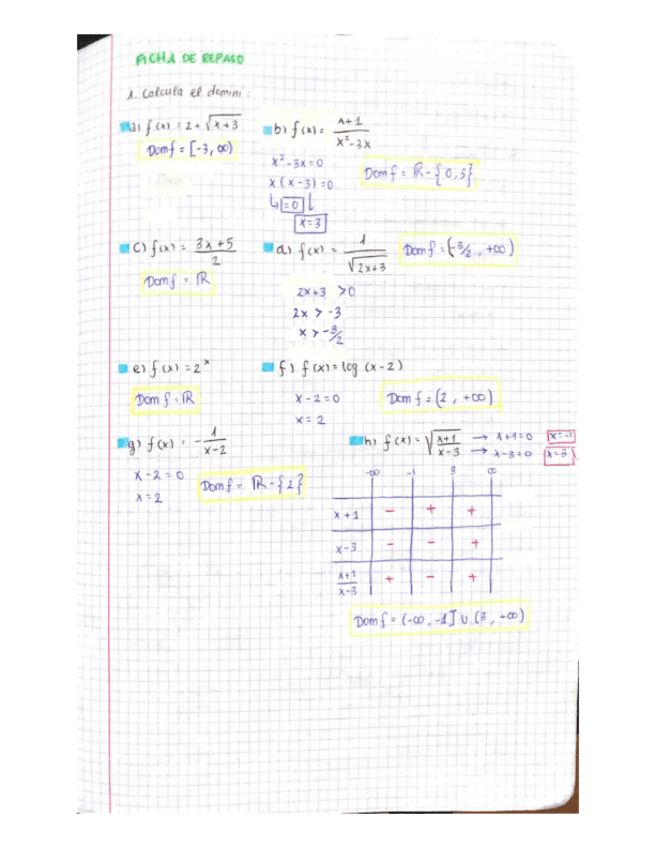 FICHA DE REPASO
1. Calcula el domini:
a) f(x) = 2 + √(x+3)
Dom f = [-3, ∞)
b) f(x) = (x+1)/(x²-3x)
x²-3x=0
x(x-3)=0
↳ =0 ↓
x=3
Dom f = ℝ - {0,3}
c) f(x) = (3x+5)/2
Dom f = ℝ
d) f(x) = 1/√(2x+3)
Dom f = (-3/2, +∞)
2x+3 >0
2x > -3
x > -3/2
e) f(x) = 2ˣ
Dom f = ℝ
f) f(x) = log (x-2)
x-2=0
x=2
Dom f = (2, +∞)
g) f(x) = -1/(x-2)
x-2=0
x=2
Dom f = ℝ - {2}
h) f(x) = √((x+1)/(x-3)) → x+1=0 x=-1
→ x-3=0 x=3
-∞ -1 3 ∞
x+1 - + +
x-3 - - +
(x+1)/(x-3) + - +
Dom f = (-∞, -1] ∪ (3, +∞)